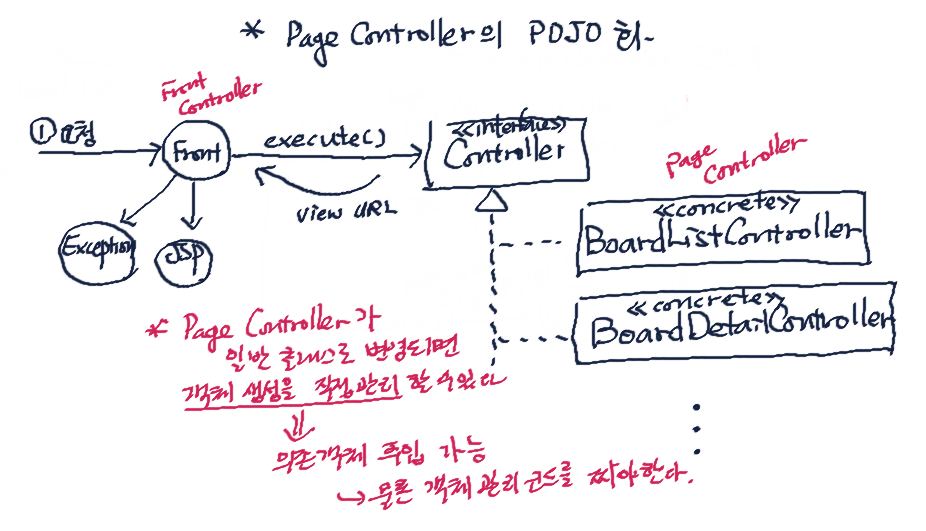 * Page Controller의 POJO화.
Front
Controller
① 요청
Front
execute()
View URL
<<interface>>
Controller
Exception
JSP
Page
Controller
<<concrete>>
BoardListController
<<concrete>>
BoardDetailController
* Page Controller가
일반 클래스로 변경되면
객체 생성을 직접관리 할 수 있다
⇓
의존객체 주입 가능
↳ 물론 객체 관리 코드를 짜야한다.